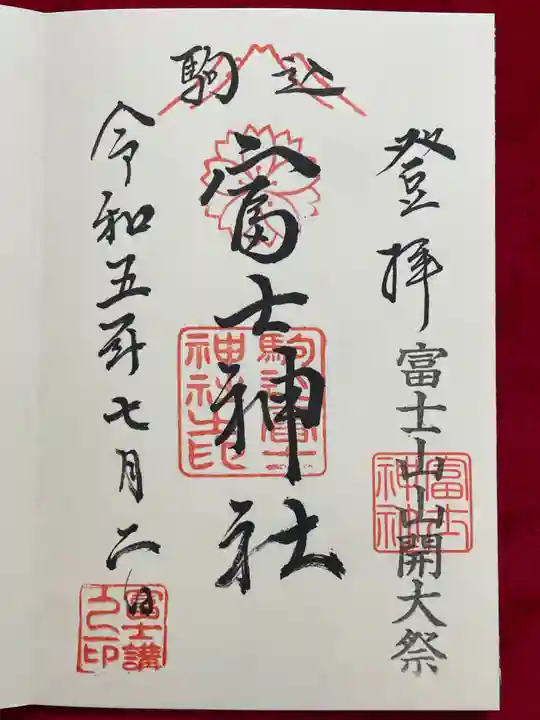 登拝
富士山山開大祭
富士神社
駒込
富士神社
駒込富士神社之印
令和五年七月二日
富士講
之印